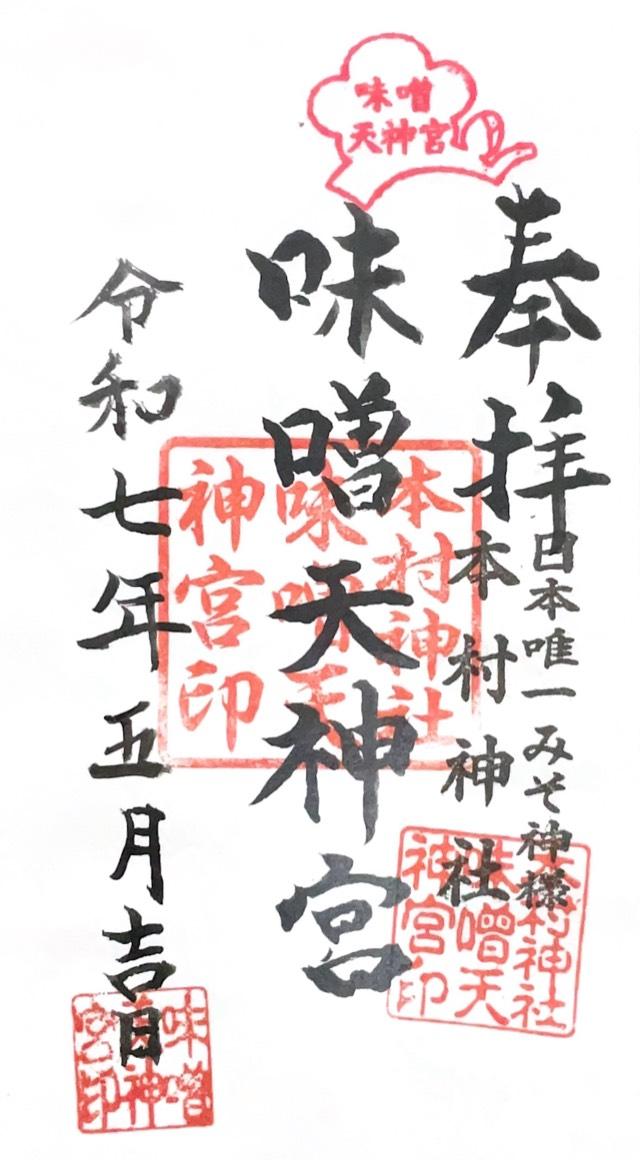 味噌
天神宮
奉拝
日本唯一みそ神様
本村神社
味噌天神宮
令和七年五月吉日
本村神社
味噌天
神宮印
本村神社
味噌天
神宮印
味噌
天神
宮印